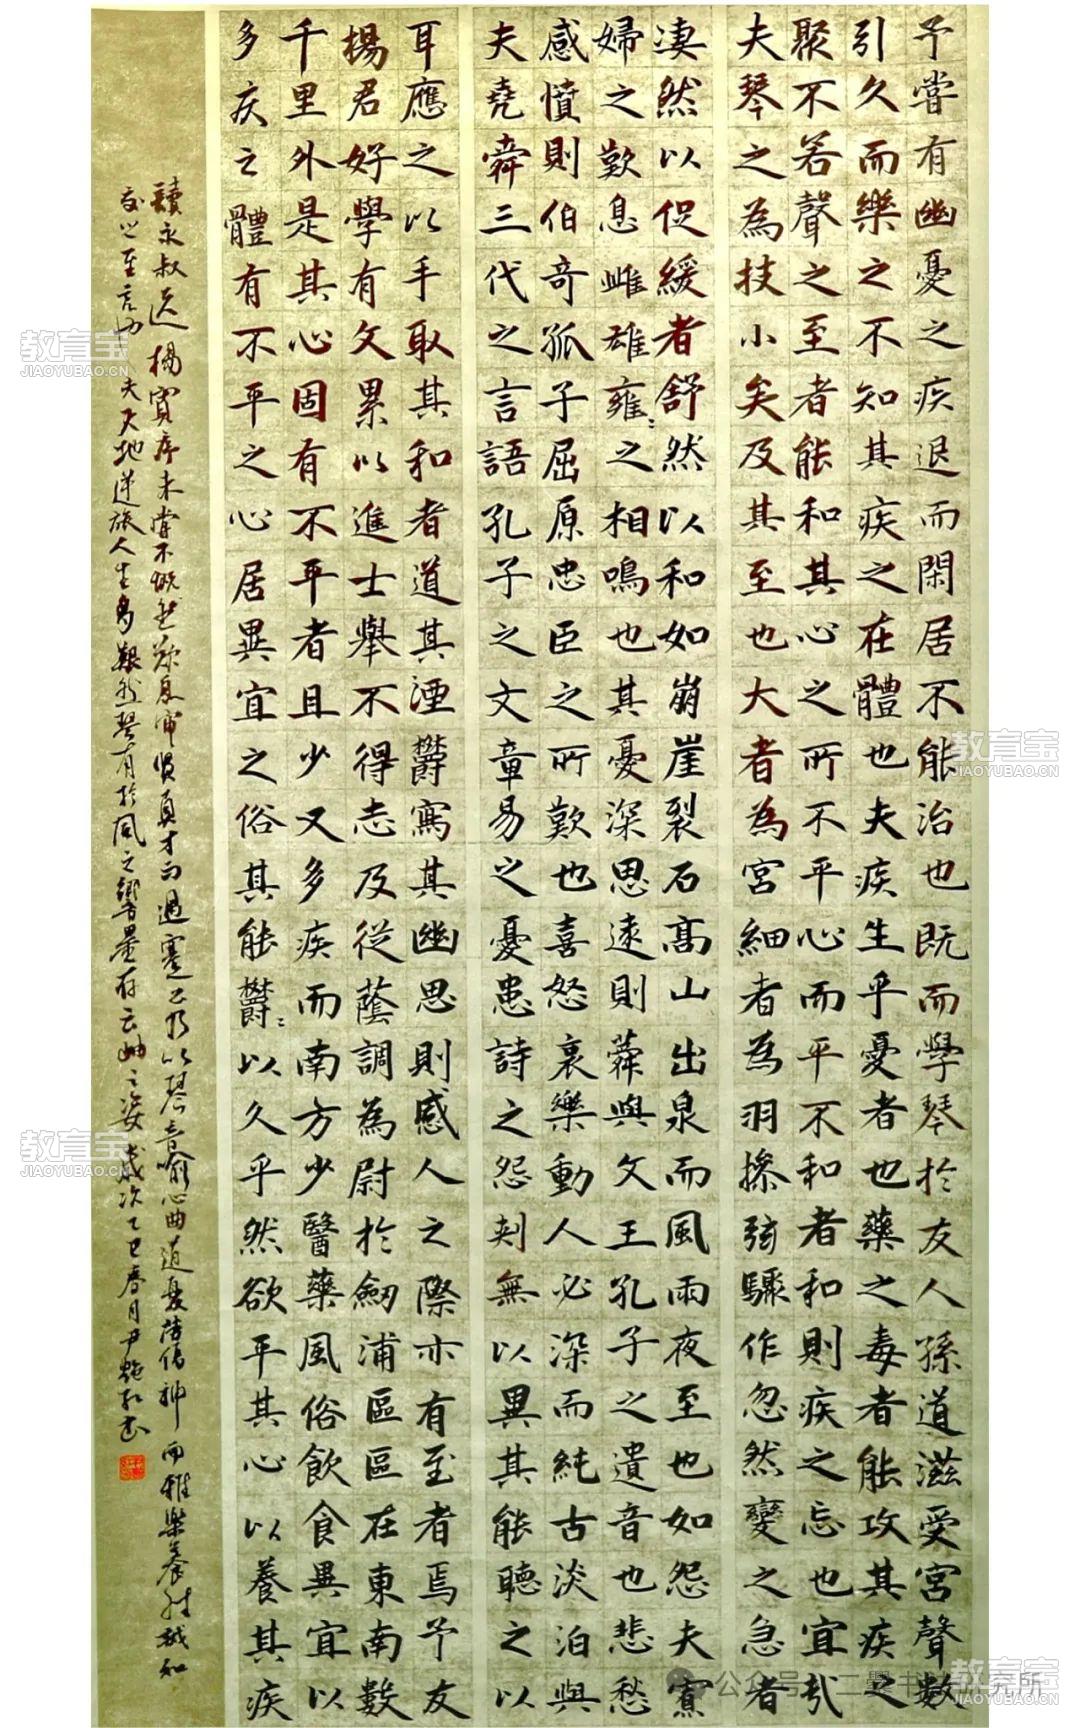 予嘗有幽憂之疾退而閑居不能治也既而學琴於友人孫道滋受宮聲數
引久而樂之不知其疾之在體也夫疾生乎憂者也藥之毒者能攻其疾之
聚不若聲之至者能和其心之所不平心而平不和者和則疾之忘也宜哉
夫琴之為技小矣及其至也大者為宮細者為羽摻弦驟作忽然變之急者
凄然以促緩者舒然以和如崩崖裂石高山出泉而風雨夜至也如怨夫寡
婦之歎息雌雄雍〻之相鳴也其憂深思遠則舜與文王孔子之遺音也悲愁
感憤則伯奇孤子屈原忠臣之所歎也喜怒哀樂動人必深而純古淡泊與
夫堯舜三代之言語孔子之文章易之憂患詩之怨刺無以異其能聽之以
耳應之以手取其和者道其湮鬱寫其幽思則感人之際亦有至者焉予友
楊君好學有文累以進士舉不得志及從蔭調為尉於劒浦區區在東南數
千里外是其心固有不平者且少又多疾而南方少醫藥風俗飲食異宜以
多疾之體有不平之心居異宜之俗其能鬱〻以久乎然欲平其心以養其疾
讀永叔送楊寘序未嘗不慨然歎息賢真才而遇蹇乃以琴音喻心曲道憂傷神而雅樂養性誠知
友之至言也夫天地逆旅人生多艱然琴有於風之響墨存云之姿歲次乙巳春月尹艷書
教育宝
JIAOYUBAO.CN
教育宝
JIAOYUBAO.CN
教育宝
JIAOYUBAO.CN
教育宝
JIAOYUBAO.CN
公众号 二爨书 究所